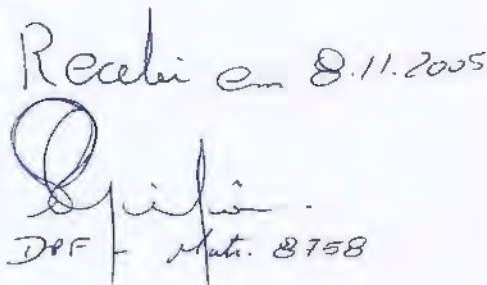 Recebi em 8.11.2005
DPF - Matr. 8758